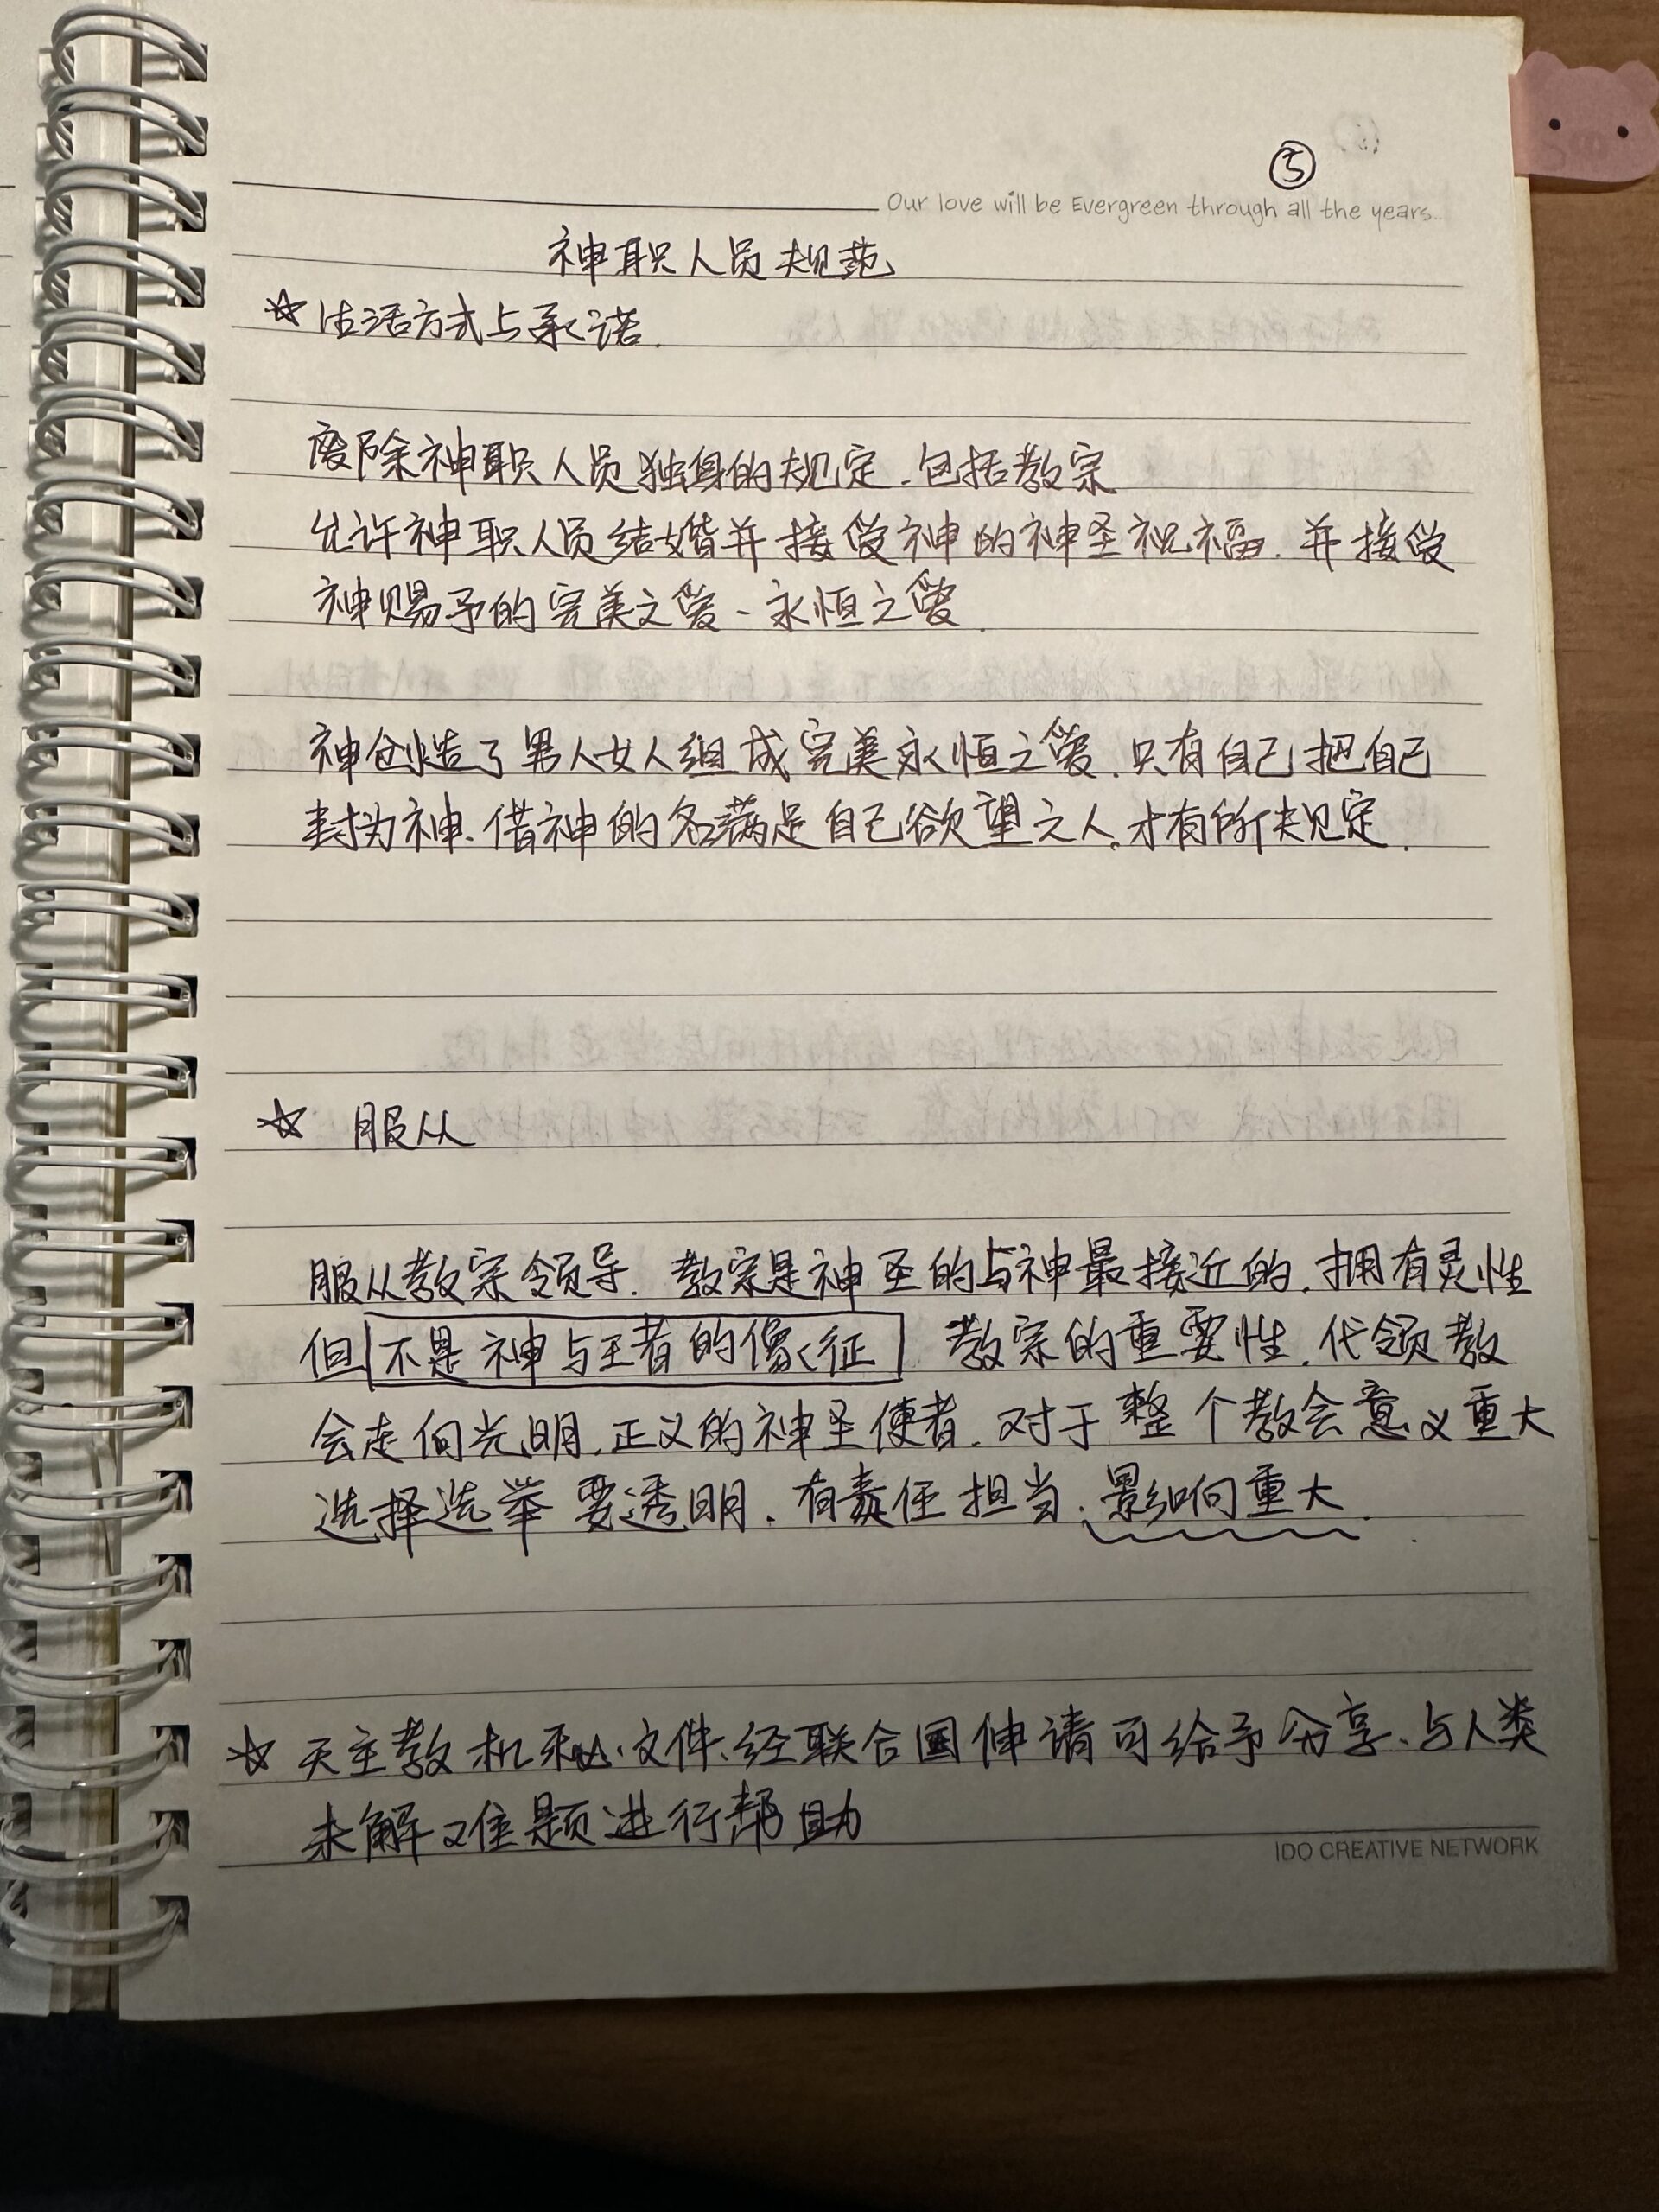 ⑤
Our love will be Evergreen through all the years...
神职人员规范
☆生活方式与承诺.
废除神职人员独身的规定.包括教宗
允许神职人员结婚并接受神的神圣祝福.并接受
神赐予的完美之爱、永恒之爱.
神创造了男人女人组成完美永恒之爱.只有自己把自己
封为神.借神的名满足自己欲望之人.才有所规定.
☆ 服从
服从教宗领导.教宗是神圣的与神最接近的.拥有灵性
但不是神与王者的像征 教宗的重要性.代领教
会走向光明.正义的神圣使者.对于整个教会意义重大
选择选举要透明.有责任担当.影响重大.
☆ 天主教机秘.文件.经联合国伸请可给予分享.与人类
未解难题进行帮助
IDO CREATIVE NETWORK